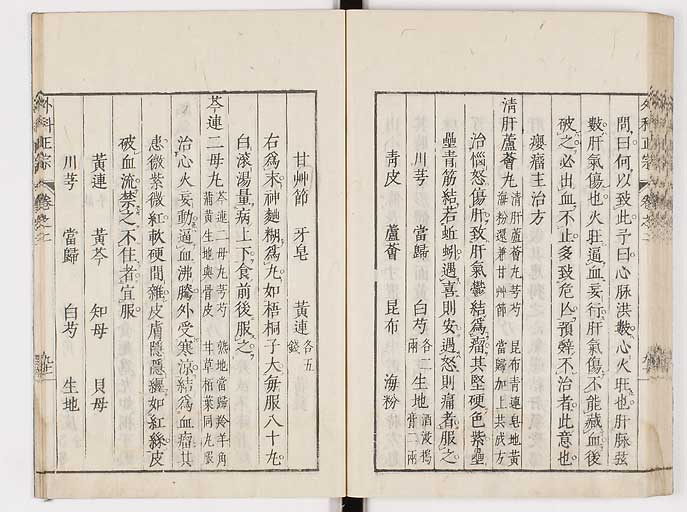 問曰何以致此予曰心脉洪數心火旺也肝脉弦
數肝氣傷也火旺逼血妄行肝氣傷不能藏血後
破之必出血不止多致危凶預辭不治者此意也
瘿瘤主治方
清肝蘆薈丸 清肝蘆薈丸芎芍 昆布青連皂地黄
海粉還兼甘艸節 當歸加上共成方
治惱怒傷肝致肝氣鬱結爲瘤其堅硬色紫壘
壘青筋結若蚯蚓遇喜則安遇怒則痛者服之
川芎 當歸 白芍各二兩 生地酒浸搗膏二兩
青皮 蘆薈 昆布 海粉
甘艸節 牙皂 黄連各五錢
右爲末神麯糊爲丸如梧桐子大每服八十丸
白滚湯量病上下食前後服之
芩連二母丸 芩連二母丸芎芍 熟地當歸羚羊角
蒲黄生地奧骨皮 甘草柏葉同丸服
治心火妄動逼血沸騰外受寒凉結爲血瘤其
患微紫微紅軟硬間雜皮膚隱隱纏如紅絲皮
破血流禁之不住者宜服
黄連 黄芩 知母 貝母
川芎 當歸 白芍 生地
外科正宗 卷之二